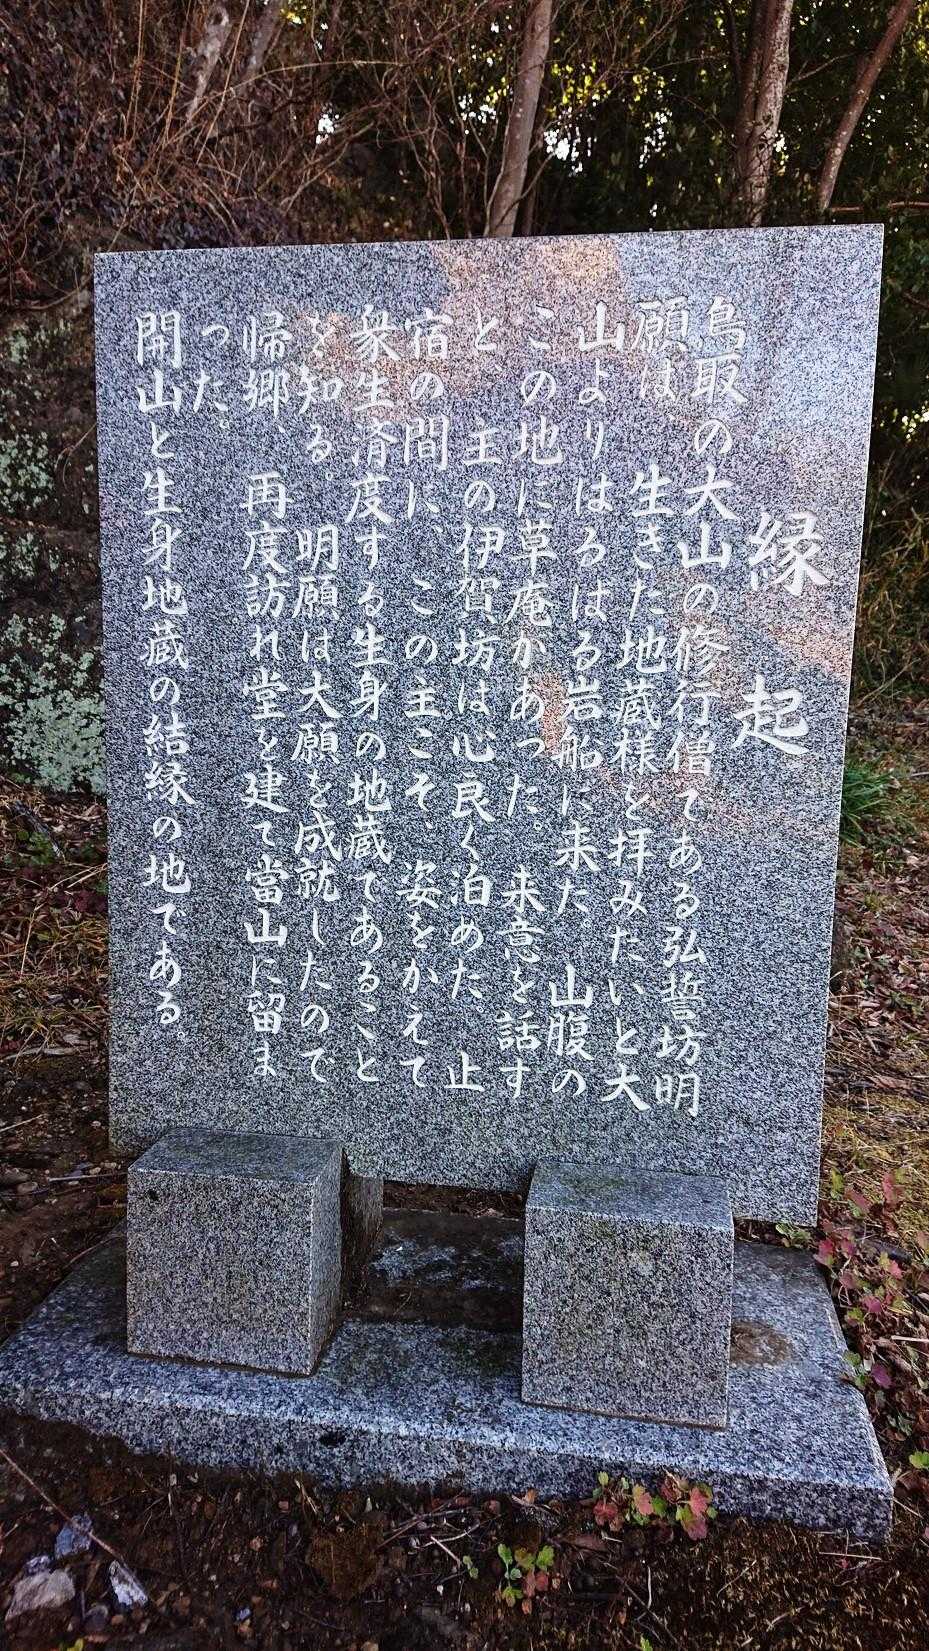 縁起
鳥取の大山の修行僧である弘誓坊明
願は 生きた地蔵様と拝みたいと大
山よりはるばる岩船に来た。山腹の
この地に草庵があった。来意を話す
と、主の伊賀坊は心良く泊めた。止
宿の間に、この主こそ、姿をかえて
衆生済度する生身の地蔵であること
を知る。明願は大願を成就したので
帰郷、再度訪れ堂を建て當山に留ま
った。
開山と生身地蔵の結縁の地である。